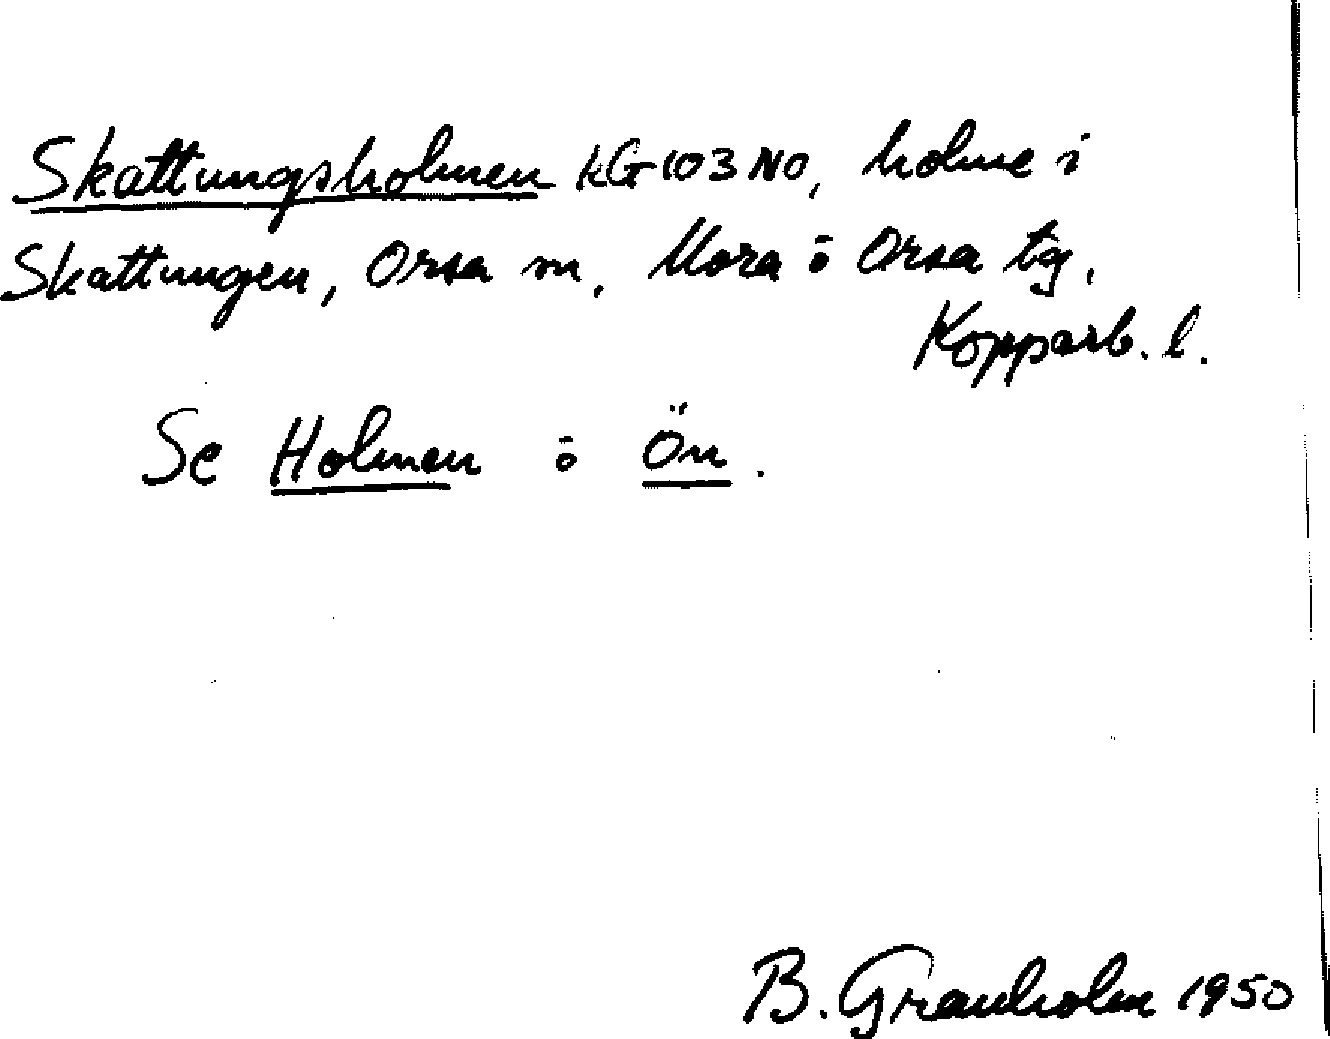 Skattungsholmen kG 103 NO, holme i
Skattungen, Orsa m, Mora o Orsa tg,
Kopparb. l.
Se Holmen o Ön.
B. Granholm 1950